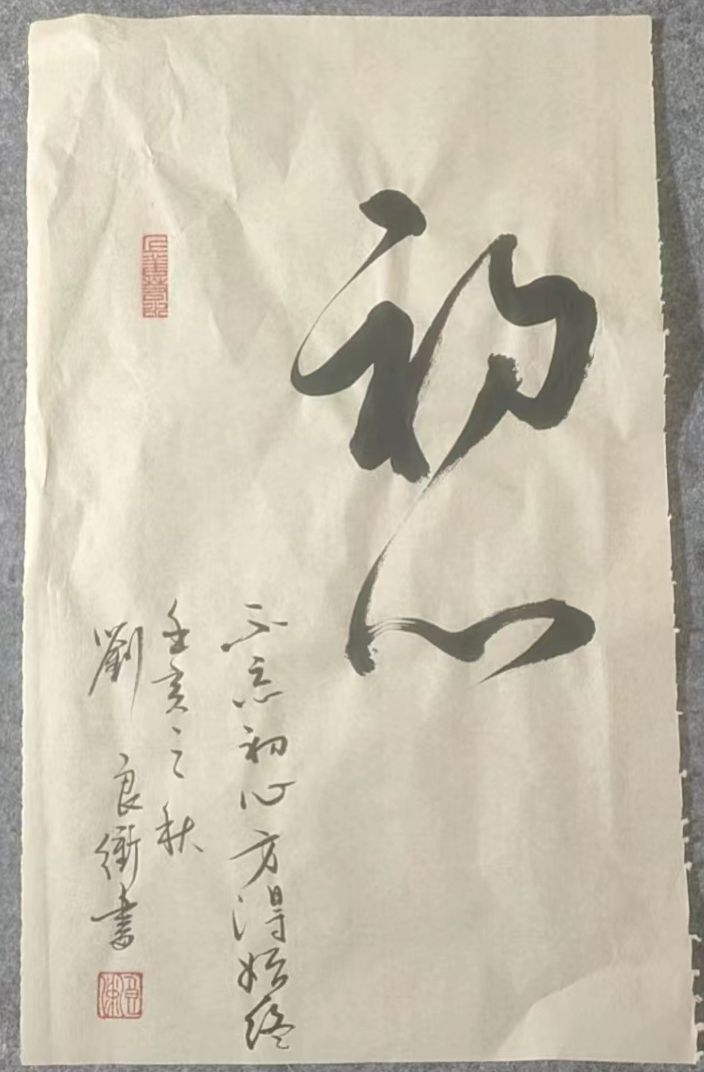 初心
不忘初心方得始终
壬亥之秋
劉良衡書